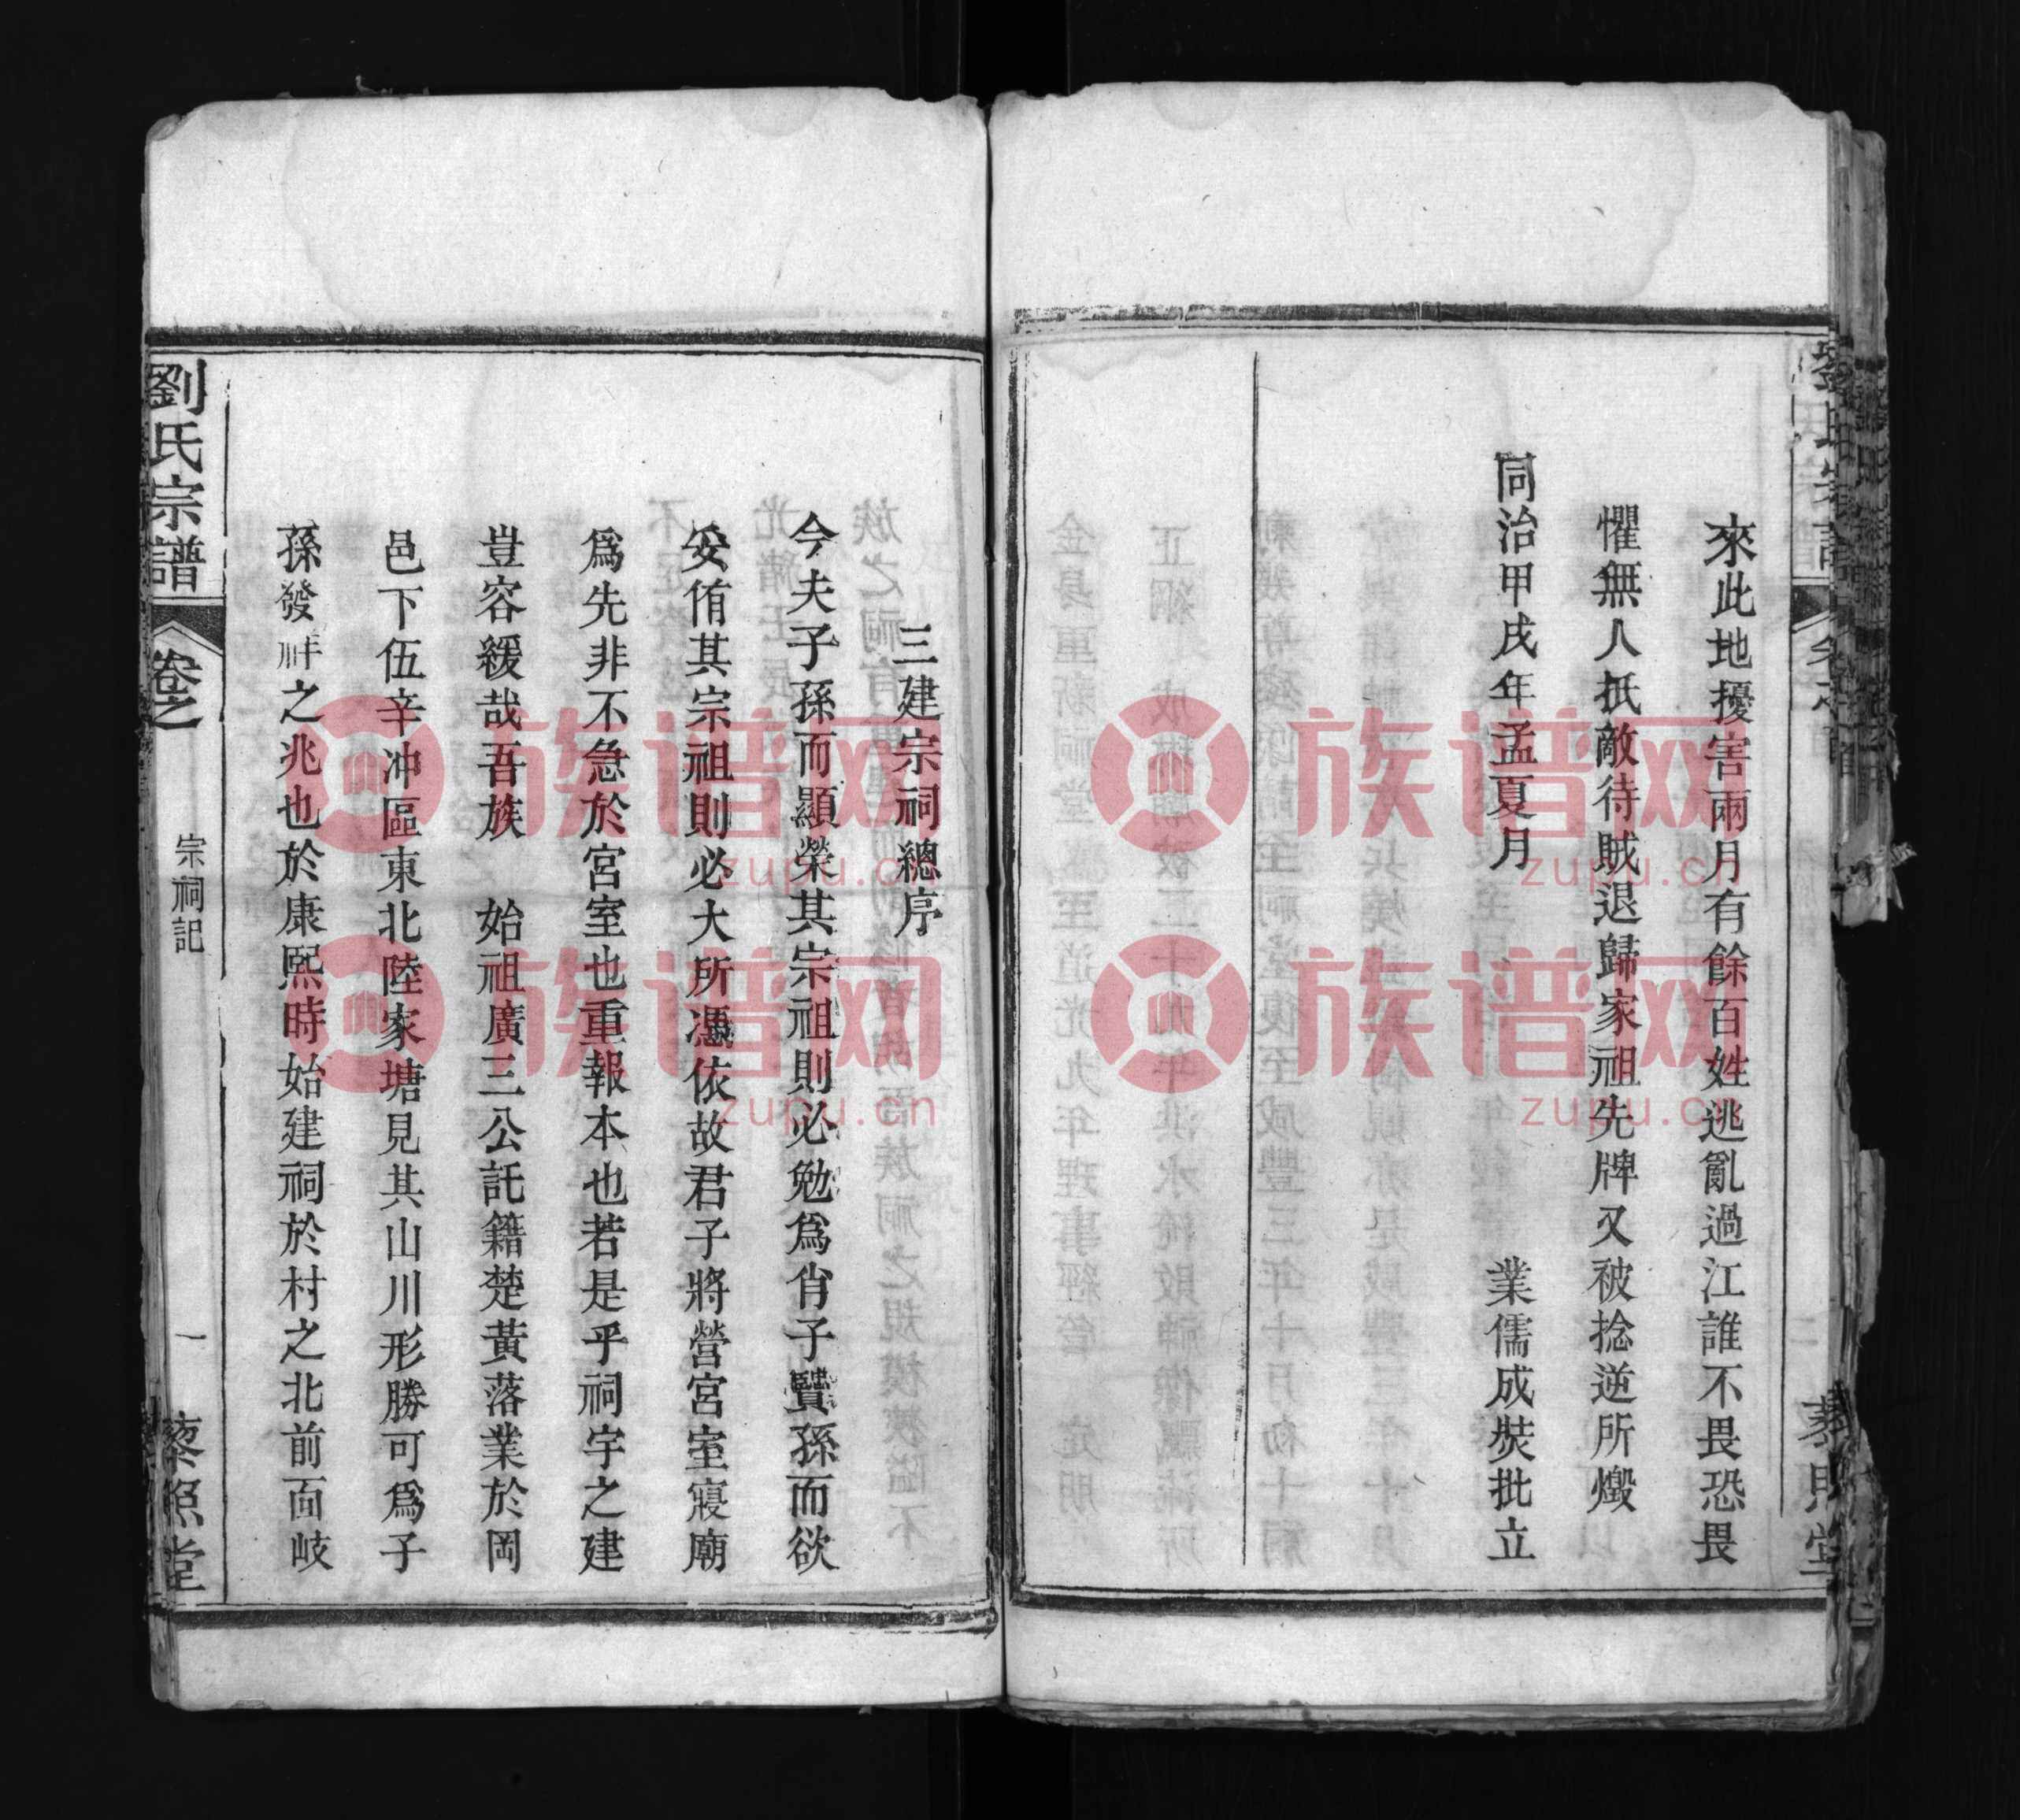 來此地擾害兩月有餘百姓逃亂過江誰不畏恐畏
懼無人抵敵待賊退歸家祖先牌又被捻逆所燬
同治甲戌年孟夏月
業儒成奘批立
三建宗祠總序
今夫子孫而顯榮其宗祖則必勉為肖子賢孫而欲
妥侑其宗祖則必大所憑依故君子將營宮室寢廟
爲先非不急於宮室也重報本也若是乎祠宇之建
豈容緩哉吾族　始祖廣三公託籍楚黃落業於岡
邑下伍辛冲區東北陸家塘見其山川形勝可爲子
孫發祥之兆也於康熙時始建祠於村之北前面岐
劉氏宗譜
卷之
宗祠記
一
藜照堂
族谱网
zupu.cn
族谱网
zupu.cn
族谱网
zupu.cn
族谱网
zupu.cn